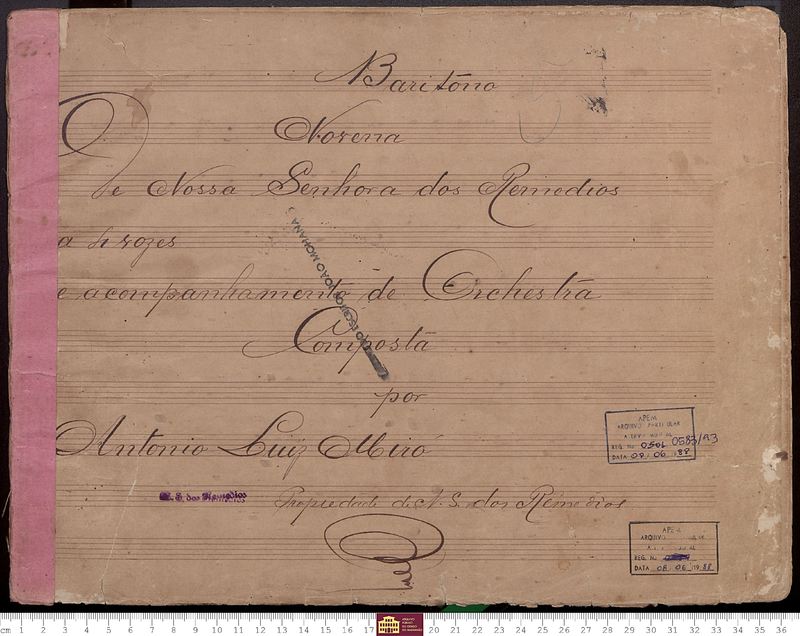 Baritôno
Novena
De Nossa Senhora dos Remedios
a 4 vozes
e acompanhamento de Orchestra
Composta
por
Antonio Luiz Miró
N. S. dos Remedios
Propiedade de N. S. dos Remedios
JOÃO MOHANA
APEM
ARQUIVO PARTICULAR
REG. No 0583/93
DATA 08 / 06 / 88
APEM
ARQUIVO
REG. No
DATA 08 / 06 / 1988
cm 1 2 3 4 5 6 7 8 9 10 11 12 13 14 15 16 17 20 21 22 23 24 25 26 27 28 29 30 31 32 33 34 35 36